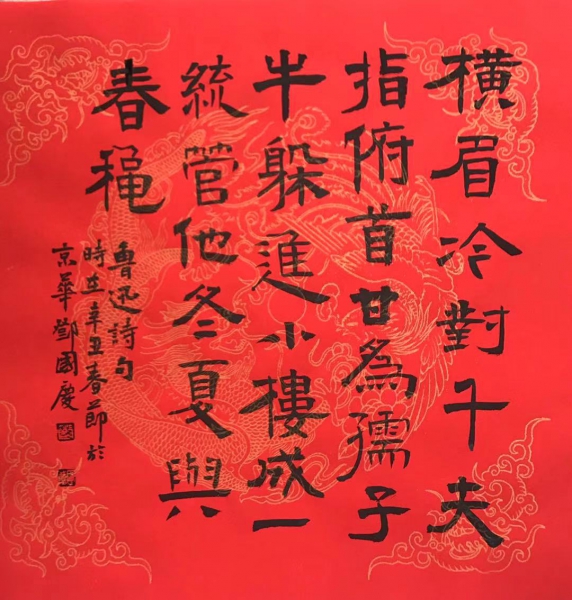 橫眉冷對千夫
指俯首甘為孺子
牛躲進小樓成一
統管他冬夏與
春穐
魯迅詩句
時在辛丑春節於
京華鄧國慶